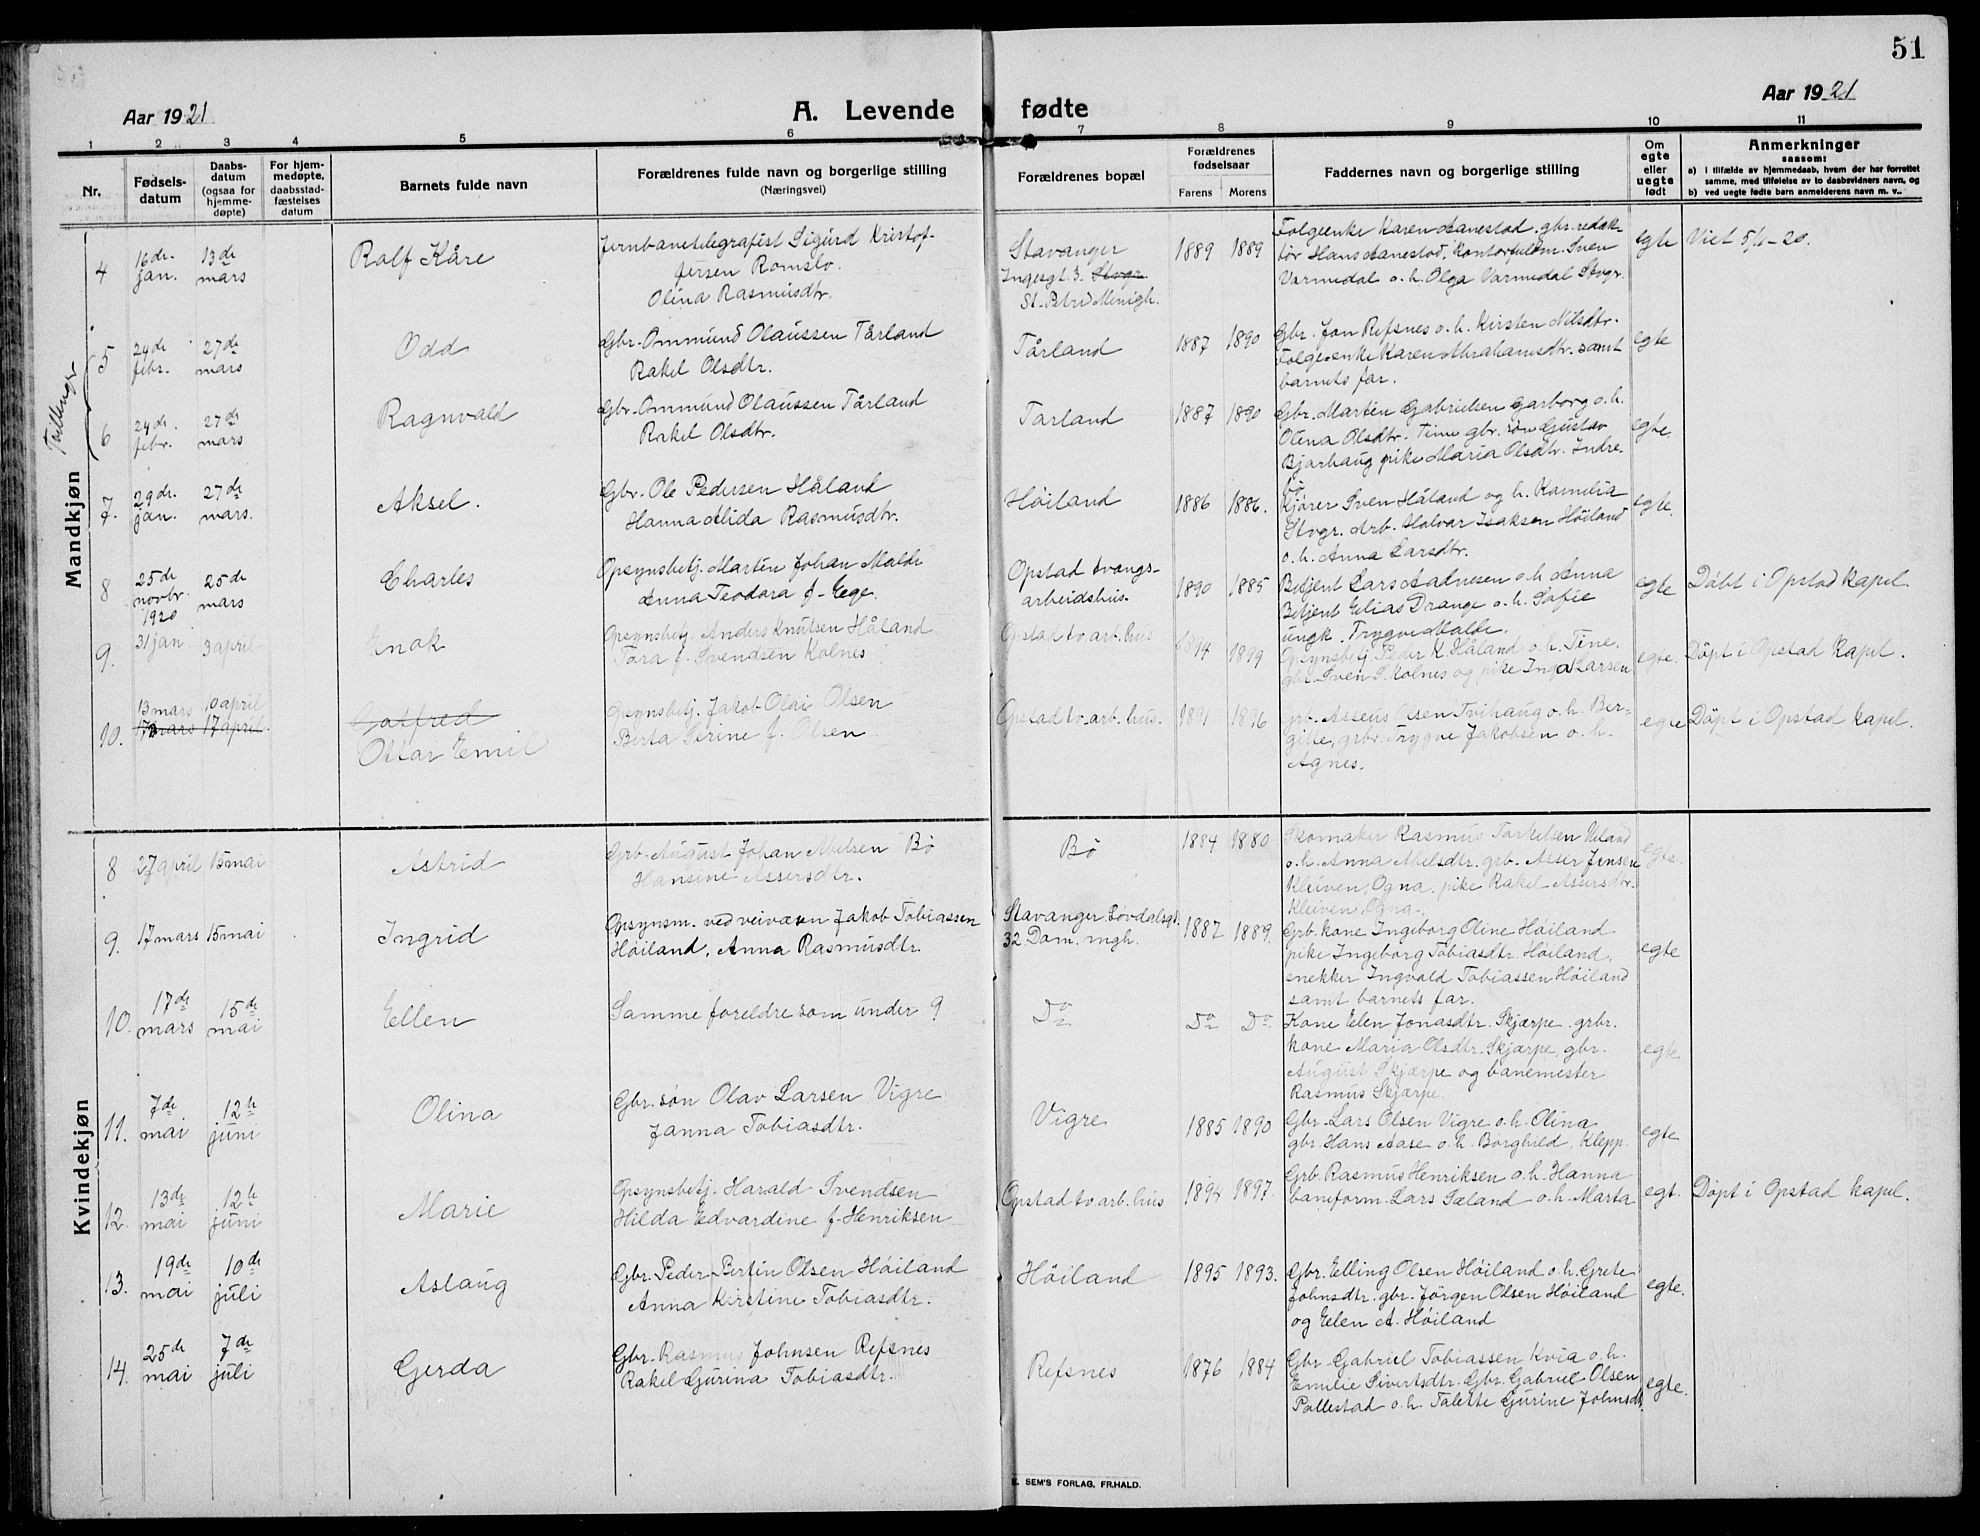 51
Aar 1921
A. Levende fødte
Aar 1921
1 2 3 4 5 6 7 8 9 10 11
Nr.
Fødsels-
datum
Daabs-
datum
(ogsaa for
hjemme-
døpte)
For hjem-
medøpte,
daabsstad-
fæstelses
datum
Barnets fulde navn
Forældrenes fulde navn og borgerlige stilling
(Næringsvei)
Forældrenes bopæl
Forældrenes
fødselsaar
Farens Morens
Faddernes navn og borgerlige stilling
Om
egte
eller
uegte
født
Anmerkninger
saasom:
a) i tilfælde av hjemmedaab, hvem der har forrettet
samme, med tilføielse av to daabsvidners navn, og
b) ved uegte fødte barn anmelderens navn m. v..
Mandkjøn
4
16de jan.
13de mars
Rolf Kåre
Jernbanetelegrafist Sigurd Kristof-
fersen Romslo.
Olina Rasmusdtr.
Stavanger
Ingesgt. 3. Stvgr
St. Petri Menigh.
1889 1889
Folgeenke Karen Aanestad. gbr. redak-
tør Hans Aanestad, Kontorfuldm. Sven
Varmedal o.h. Olga Varmedal Stvgr.
egte
Viet 5/1-20.
Tvillinger
5
24de febr.
27de mars
Odd
Gbr. Ommund Olaussen Tårland
Rakel Olsdtr.
Tårland
1887 1890
Gbr. Jon Refsnes o.h. Kirsten Nilsdtr.
Folgeenke Karen Abrahamsdtr. samt
barnets far.
egte
6
24de febr.
27de mars
Ragnvald
Gbr. Ommund Olaussen Tårland
Rakel Olsdtr.
Tarland
1887 1890
Gbr. Martin Gabrielsen Garborg o.h.
Olena Olsdtr. Time gbr. søn Gustav
Bjorhaug pike Maria Olsdtr. Indre
Bø
egte.
7.
29de jan.
27de mars.
Aksel.
Gbr. Ole Pedersen Håland
Hanna Alida Rasmusdtr.
Höiland
1886 1886.
Kjører Sven Håland og h. Kamilia
Stvgr. Arb. Halvar Isaksen Höiland
o.h. Anna Larsdtr.
egte.
8
25de novbr. 1920
25de mars
Charles
Opsynsbetj. Martin Johan Malde
Anna Teodora f. Ege.
Opstad tvangs-
arbeidshus.
1890 1885
Betjent Lars Aadnesen o.h Anna
Betjent Elias Drange o.h. Sofie
ungk. Trygve Malde.
egte
Döbt i Opstad kapel.
9.
31 jan
3 april
Enok
Opsynsbetj. Anders Knutsen Håland
Tora f. Svendsen Kolnes
Opstad tv. arb. hus
1894 1899
Opsynsbetj. Peder K. Håland o.h. Tine,
gbr. Sven S. Kolnes og pike Inga Larsen
egte.
Döpt i Opstad Kapel.
10.
13 mars 10 april
17 mars 17 april.
Gotfred
Ottar Emil
Opsynsbetj. Jakob Olai Olsen
Berta Serine f. Olsen
Opstad tv. arb. hus.
1891 1896
grb. Asseus Olsen Tvihaug o.h. Bir-
gitte, grbr. Trygve Jakobsen o.h.
Agnes.
egte
Döpt i Opstad kapel.
Kvindekjøn
8
27 april 15 mai
Astrid
Grb. August Johan Abelsen Bö
Hansine Assersdtr.
Bö
1884 1880
Skomaker Rasmus Torkelsen Ueland
o.h. Anna Abelsdtr. grb. Asser Jensen
Kleiven, Ogna, pike Rakel Assersdtr.
Kleiven, Ogna.
egte.
9.
17 mars 15 mai
Ingrid
Opsynsm. ved veivæsn Jakob Tobiassen
Höiland, Anna Rasmusdtr.
Stavanger Lövdalsgt.
32 Dom. mgh.
1887 1889.
Grb. kone Ingeborg Oline Höiland
pike Ingeborg Tobiasdtr. Höiland,
snekker Ingvald Tobiassen Höiland
samt barnets far.
egte
10.
17de mars
15de mai
Ellen
Samme foreldre som under 9
Do
Do Do
Kone Elen Jonasdtr. Skjærpe. grbr.
kone Maria Olsdtr. Skjærpe, gbr.
August Skjærpe og banemester
Rasmus Skjærpe.
egte
11.
7de mai
12te juni
Olina
Gbr. søn Olav Larsen Vigre
Janna Tobiasdtr.
Vigre
1885 1890
Gbr. Lars Olsen Vigre o.h. Olina
gbr. Hans Aase o.h. Borghild, Klepp.
egte
12.
13de mai
12te juni
Marie
Opsynsbetj. Harald Svendsen
Hilda Edvardine f. Henriksen
Opstad tv. arb. hus
1894 1897.
Grb. Rasmus Henriksen o.h. Hanna
baneform. Lars Sæland o.h. Marta
egt.
Döpt i Opstad kapel.
13.
19de mai
10de juli
Aslaug
Gbr. Peder Bertin Olsen Höiland
Anna Kirstine Tobiasdtr.
Höiland
1895 1893.
Gbr. Elling Olsen Höiland o.h. Grete
Johnsdtr. gbr. Jörgen Olsen Höiland
og Elen A. Höiland
egte.
14.
25de mai
7de juli
Gerda
Gbr. Rasmus Johnsen Refsnes
Rakel Gurina Tobiasdtr.
Refsnes
1876 1884
Gbr. Gabriel Tobiassen Kvia o.h.
Emilie Sivertsdtr. Gbr. Gabriel Olsen
Pollestad o.h. Talette Gurine Johnsdtr.
egte.
E. SEM'S FORLAG, FR.HALD.